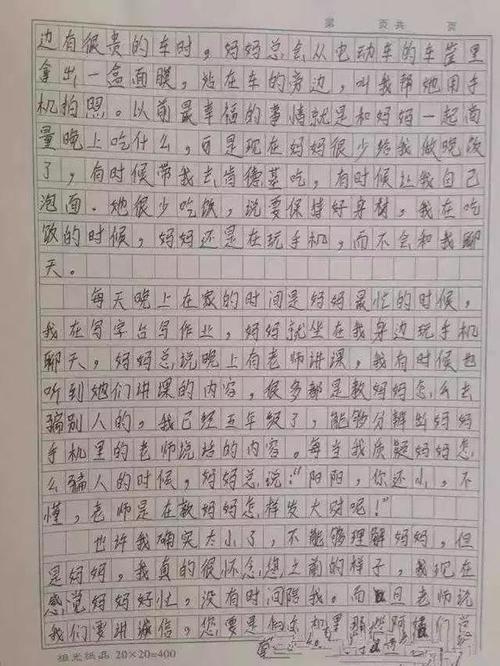 第 页共 页
边有很贵的车时，妈妈总会从电动车的车筐里
拿出一盒面膜，站在车的旁边，叫我帮她用手
机拍照。以前最幸福的事情就是和妈妈一起商
量晚上吃什么，可是现在妈妈很少给我做晚饭
了，有时候带我去肯德基吃，有时候让我自己
泡面。她很少吃饭，说要保持好身材，我在吃
饭的时候，妈妈还是在玩手机，而不会和我聊
天。
每天晚上在家的时间是妈妈最忙的时候，
我在写字台写作业，妈妈就坐在我身边玩手机
聊天，妈妈总说晚上有老师讲课，我有时候也
听到她们讲课的内容，很多都是教妈妈怎么去
骗别人的，我已经五年级了，能够分辨出妈妈
手机里的老师说话的内容。每当我质疑妈妈怎
么骗人的时候，妈妈总说：“阳阳，你还小，不
懂，老师是在教妈妈怎样发大财呢！”
也许我确实太小了，不能够理解妈妈，但
是妈妈，我真的很怀念您之前的样子，我现在
感觉妈妈好忙，没有时间陪我。而且老师说
我们要讲诚信，您要是和手机里那些阿姨们总
旭光纸品 20×20=400